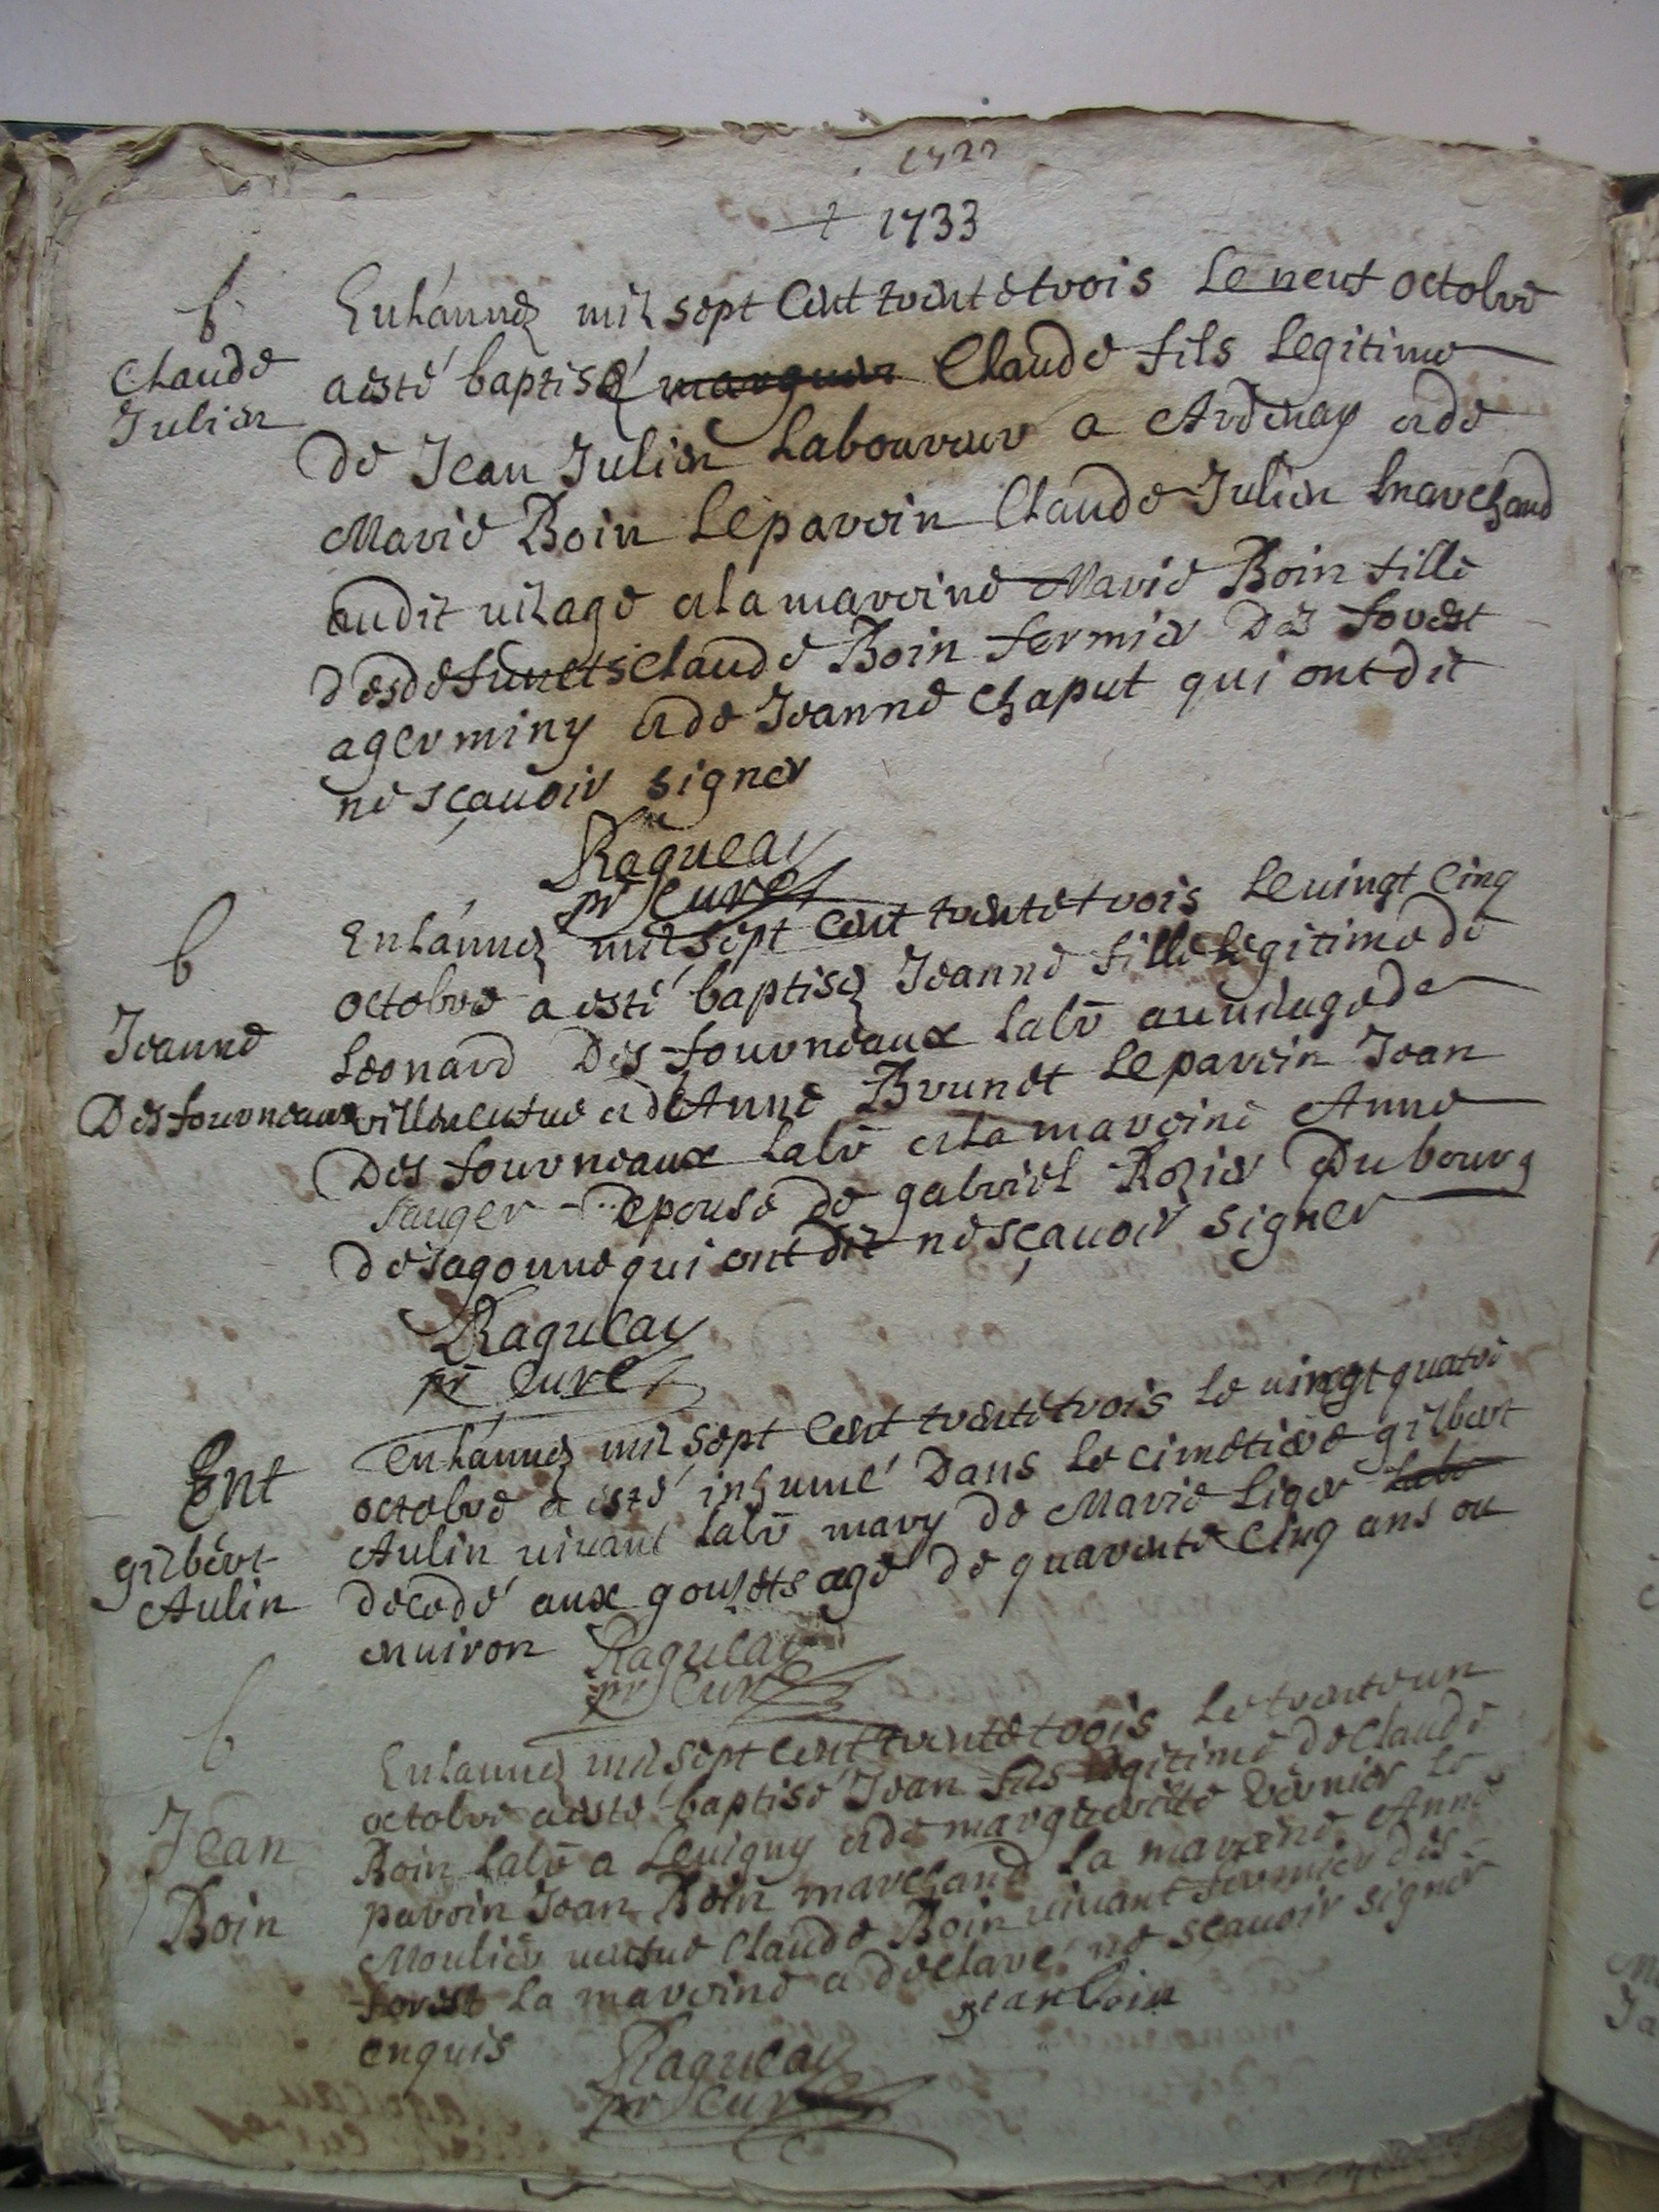 1733
b
Claude
Julien
En l'année mil sept Cent trente trois Le neuf octobre
a esté baptisé Claude fils Legitime
de Jean Julien Laboureur a Ardenay et de
Marie Boin Le parein Claude Julien marchand
audit vilage et la mareine Marie Boin fille
des defunets Claude Boin fermier Des forest
a germiny et de Jeanne Chaput qui ont dit
ne sçauoir signer
Ragueau
pr Curé
b
Jeanne
Des fourneaux
En l'année mil sept Cent trente trois Le uingt Cinq
octobre a esté baptisée Jeanne fille Legitime de
Leonard Des fourneaux Labr au uilage de
villeneufue et de Anne Brunet Le parein Jean
Des fourneaux Labr et la mareine Anne
Sauger epouse de gabriel Rozier Du bourg
de sagonne qui ont dit ne sçauoir signer
Ragueau
pr Curé
Ent
gilbert
Aulin
En l'année mil sept Cent trente trois Le uingt quatre
octobre a esté inhumé Dans Le cimetiere gilbert
Aulin uiuant Labr mary de Marie Liger Labr
decedé aux gouzets agé de quarente Cinq ans ou
enuiron
Ragueau
pr Curé
b
Jean
Boin
En l'année mil sept Cent trente trois Le trente un
octobre a esté baptisé Jean fils Legitime de Claude
Boin Labr a Leuigny et de marguerite Vernier Le
parein Jean Boin marchand La mareine Anne
Moulier ueufue Claude Boin uiuant fermier des
forest La mareine a declaré ne scauoir signer
enquis
jean boin
Ragueau
pr Curé